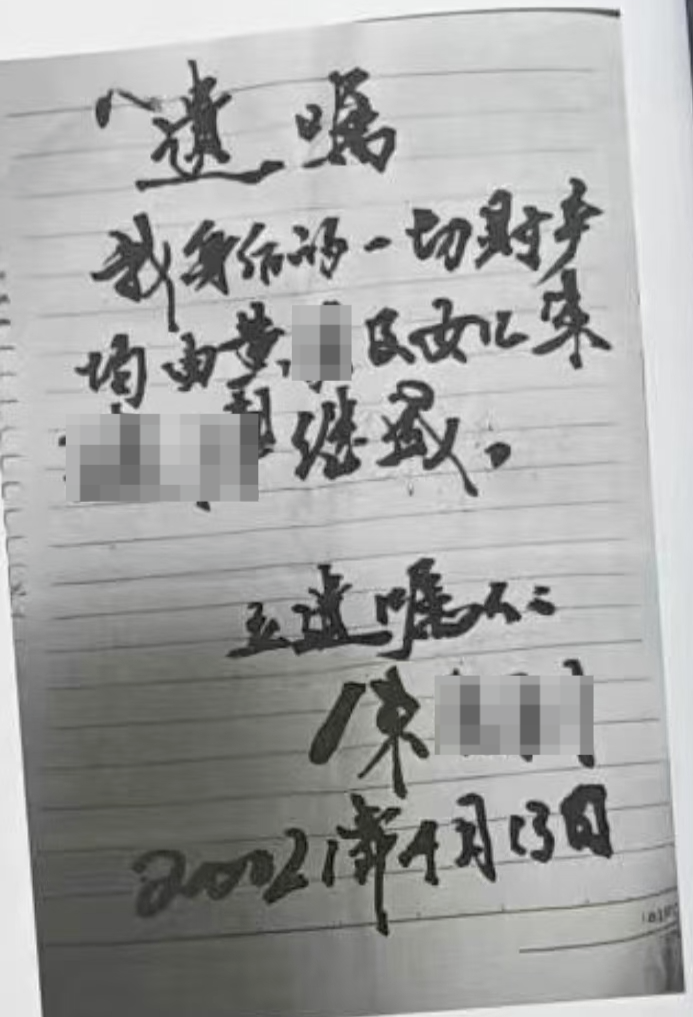 遗嘱
我身后的一切财产
均由黄 及女儿
继承。
立遗嘱人:
陈
20021年4月13日